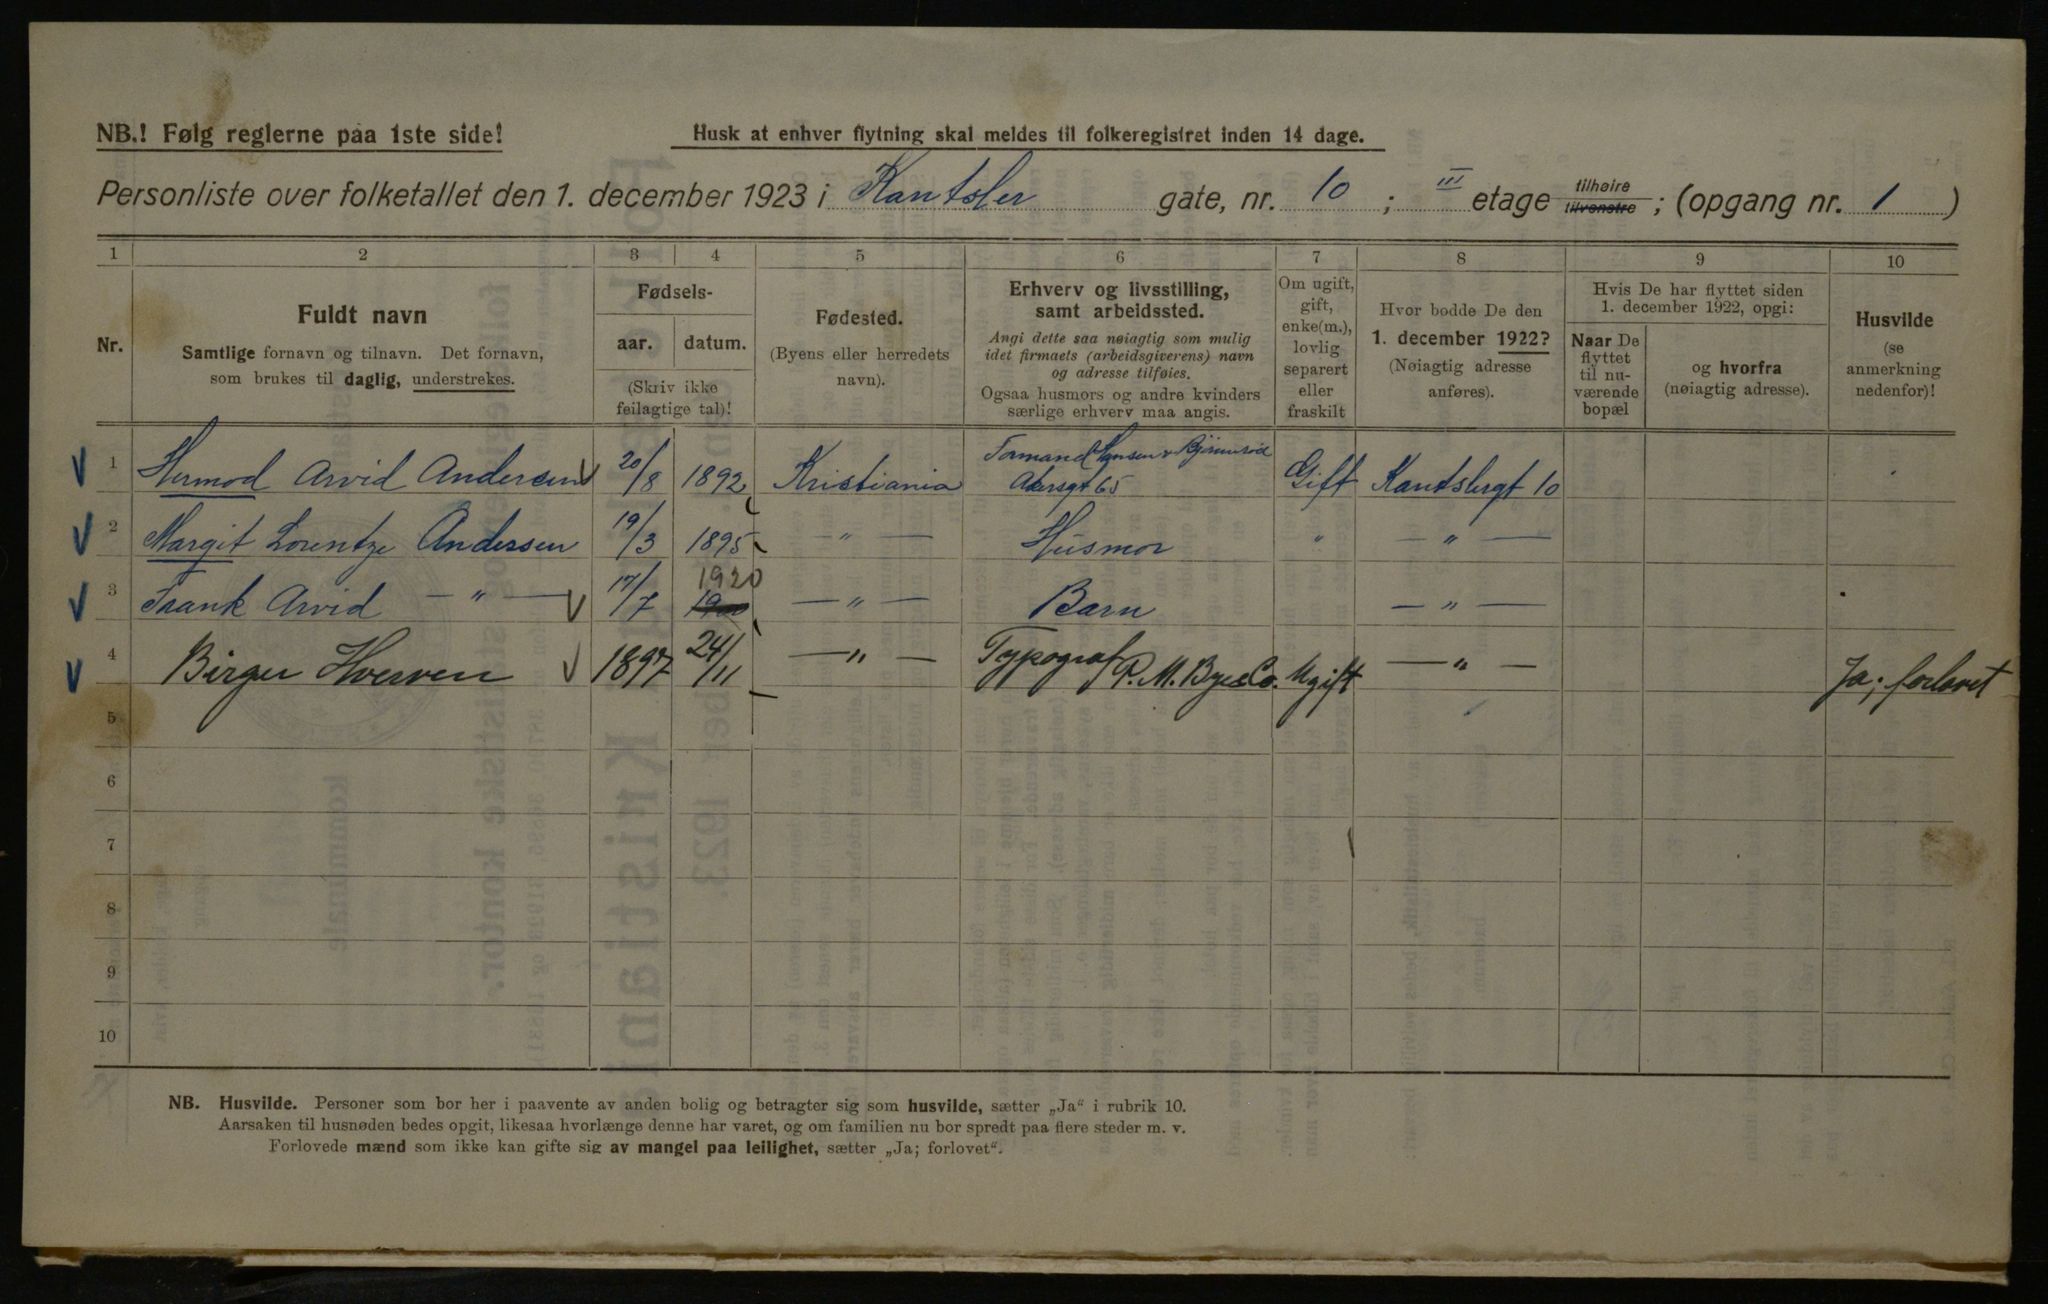 NB.! Følg reglerne paa 1ste side!
Husk at enhver flytning skal meldes til folkeregistret inden 14 dage.
Personliste over folketallet den 1. december 1923 i Kantsler gate, nr. 10 ; III etage tilhøire tilvenstre ; (opgang nr. 1 )
1 2 3 4 5 6 7 8 9 10
Nr.
Fuldt navn
Samtlige fornavn og tilnavn. Det fornavn,
som brukes til daglig, understrekes.
Fødsels-
aar. datum.
(Skriv ikke
feilagtige tal)!
Fødested.
(Byens eller herredets
navn).
Erhverv og livsstilling,
samt arbeidssted.
Angi dette saa nøiagtig som mulig
idet firmaets (arbeidsgiverens) navn
og adresse tilføies.
Ogsaa husmors og andre kvinders
særlige erhverv maa angis.
Om ugift,
gift,
enke(m.),
lovlig
separert
eller
fraskilt
Hvor bodde De den
1. december 1922?
(Nøiagtig adresse
anføres).
Hvis De har flyttet siden
1. december 1922, opgi:
Naar De
flyttet
til nu-
værende
bopæl
og hvorfra
(nøiagtig adresse).
Husvilde
(se
anmerkning
nedenfor)!
1 Hermod Arvid Andersen 20/8 1892 Kristiania Formand Hansen & Bjørnsrød Akersgt 65 Gift Kantslergt 10
2 Margit Lorentze Andersen 19/3 1895 — " — Husmor " — " —
3 Frank Arvid — " — 17/7 1920 — " — Barn — " —
4 Birger Hverven 1897 24/11 — " — Typograf R. M. Bye & Co. Ugift — " — Ja; forlovet
5
6
7
8
9
10
NB. Husvilde. Personer som bor her i paavente av anden bolig og betragter sig som husvilde, sætter „Ja“ i rubrik 10.
Aarsaken til husnøden bedes opgit, likesaa hvorlænge denne har varet, og om familien nu bor spredt paa flere steder m. v.
Forlovede mænd som ikke kan gifte sig av mangel paa leilighet, sætter „Ja; forlovet“.